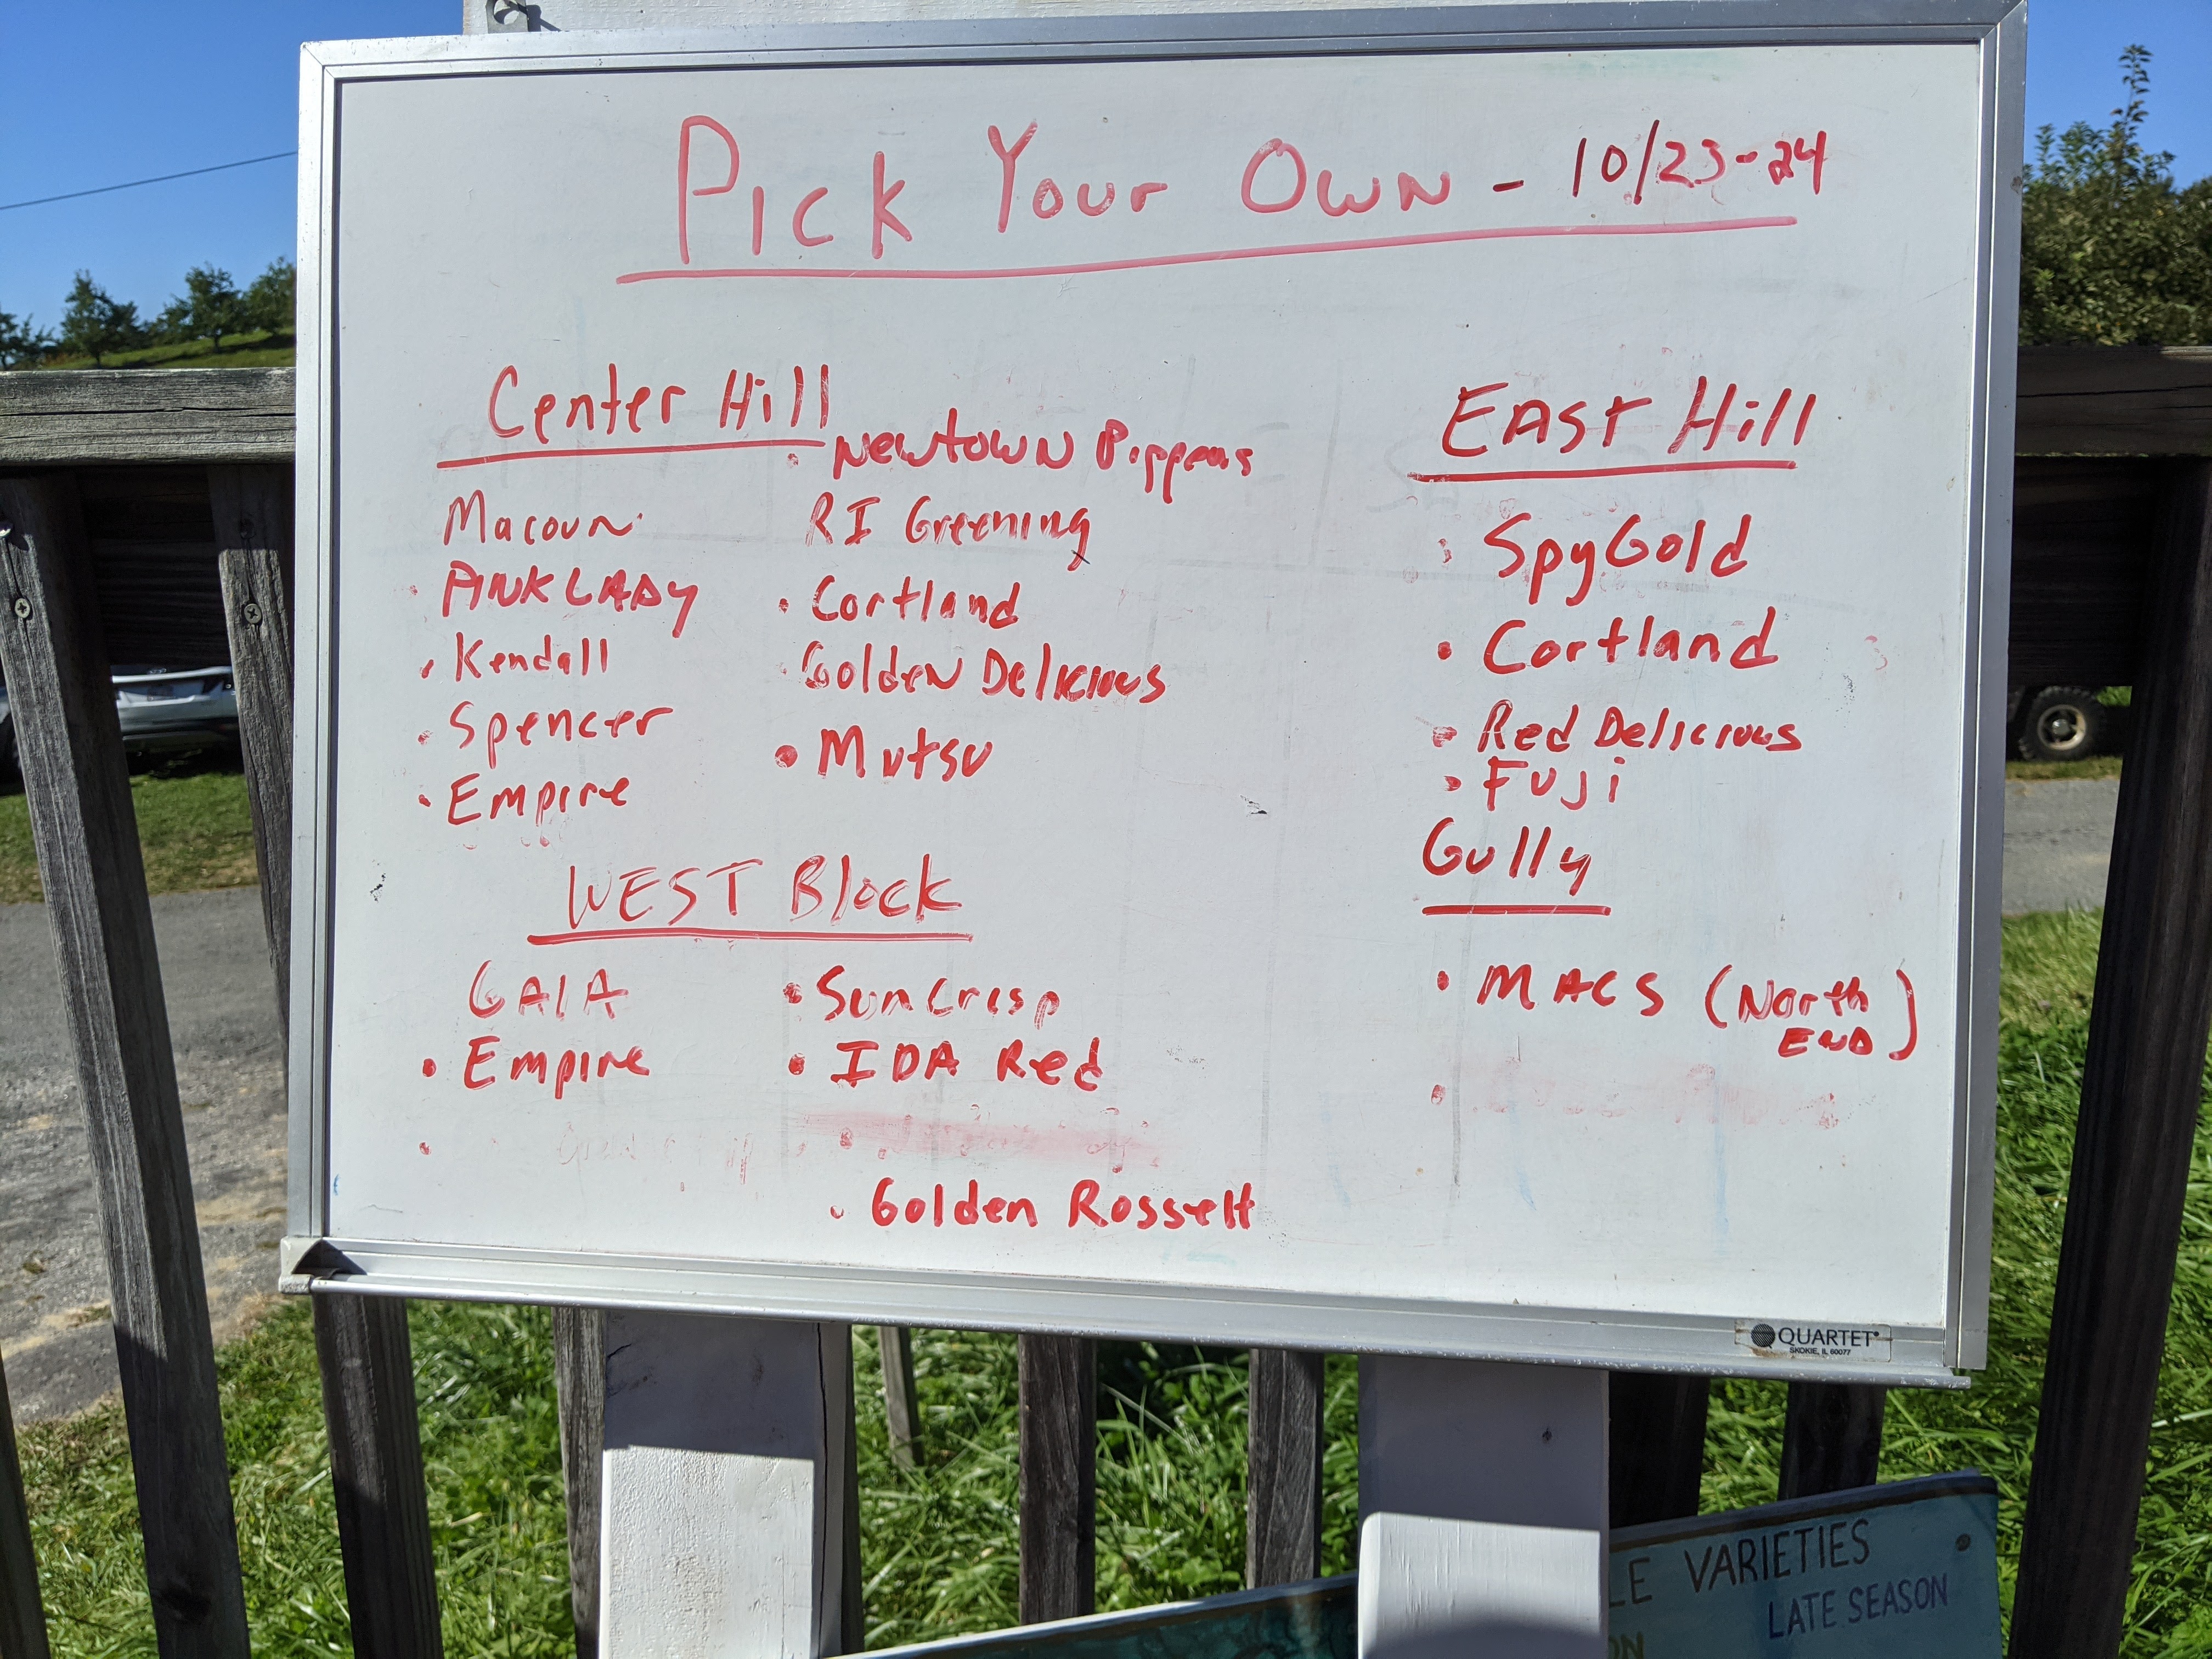 Pick Your Own - 10/23-24
Center Hill
Macoun
• PINK LADY
• Kendall
• Spencer
• Empire
• Newtown Pippens
RI Greening
• Cortland
• Golden Delicious
• Mutsu
WEST Block
GALA
• Empire
• SunCrisp
• IDA Red
• Golden Rosselt
EAST Hill
• SpyGold
• Cortland
• Red Delicious
• Fuji
Gully
• MACS (North
END)
QUARTET
SKOKIE, IL 60077
LE VARIETIES
LATE SEASON
ON